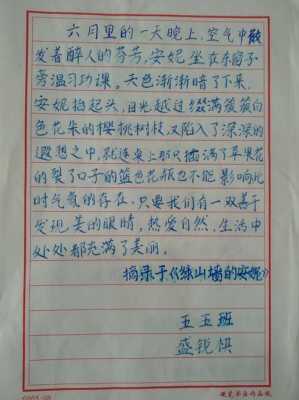 六月里的一天晚上，空气中散
发着醉人的芬芳，安妮坐在东窗子
旁温习功课。天色渐渐暗了下来，
安妮抬起头，目光越过缀满簇簇白
色花朵的樱桃树枝，又陷入了深深的
遐想之中，就连桌上那只插满了苹果花
的裂了口子的蓝色花瓶也不能影响此
时气氛的存在。只要我们有一双善于
发现美的眼睛，热爱自然，生活中
处处都充满了美丽。
摘录于《绿山墙的安妮》
五五班
盛锐